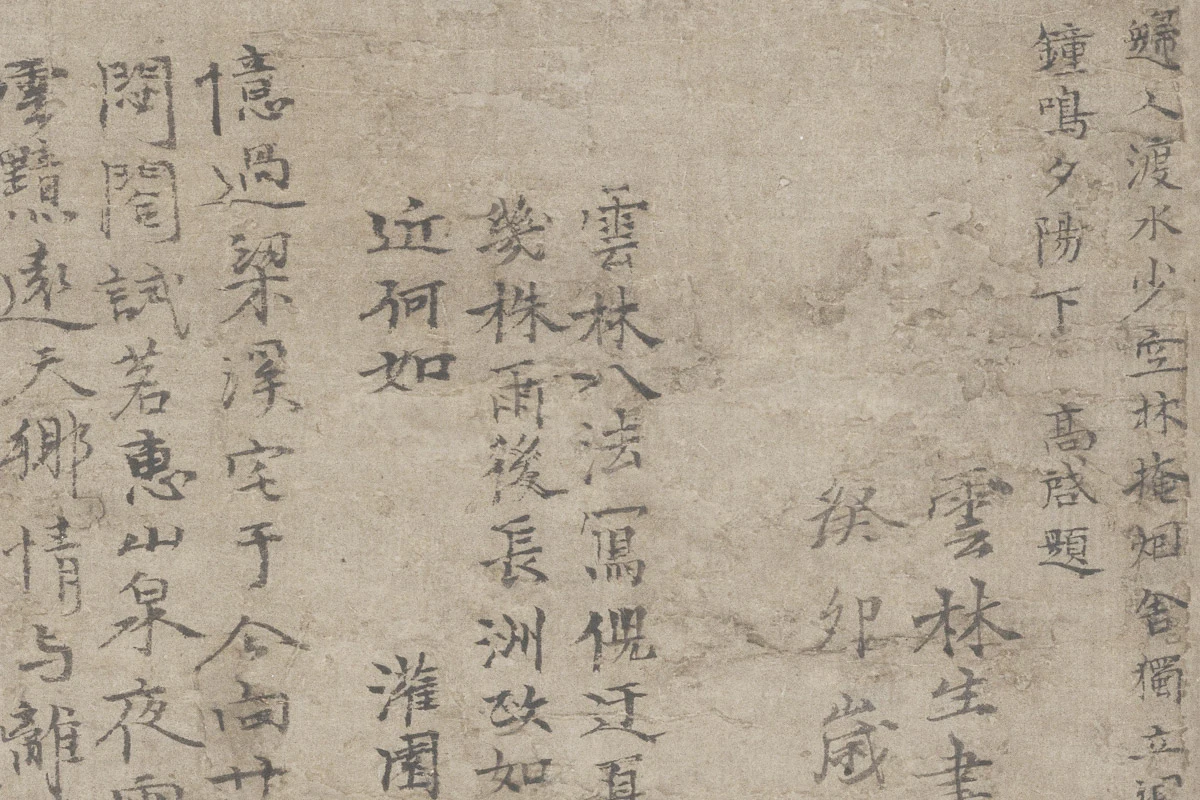 歸人渡水少空林掩烟舍獨立
鐘鳴夕陽下 高啓題
雲林生書
癸卯歲
雲林八法寫倪迂
幾株雨後長洲政如
近何如 灌園
憶過梁溪宅于今向廿
閶闔試茗惠山泉夜雨
雲黯遠天鄉情与離